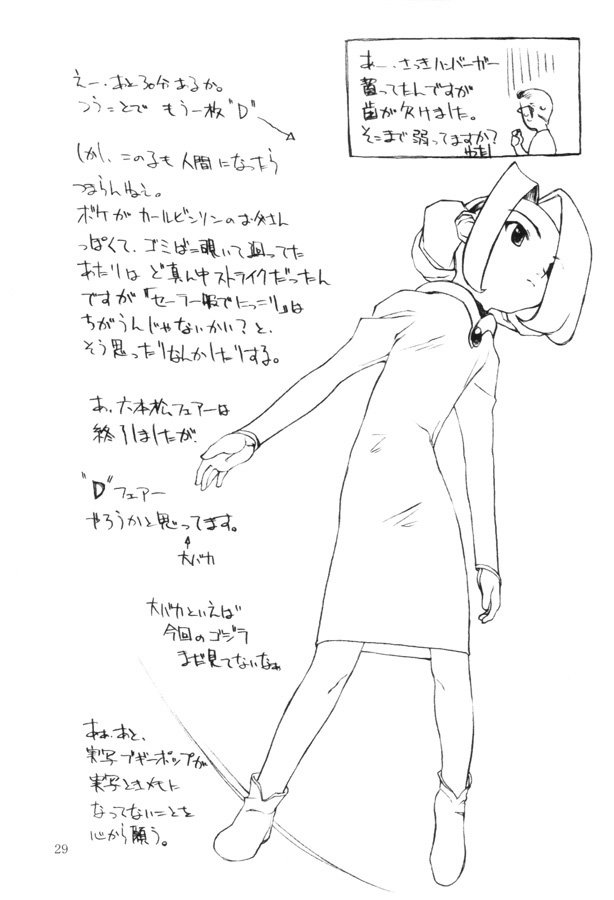 えー、あと30分あるか。
つうことで もう一枚"D"
しかし、この子も人間になったら
つまらんねぇ。
ボケがカールビンソンのお父さん
っぽくて、ゴミばこ覗いて回ってた
あたりはど真ん中ストライクだったん
ですが「セーラー服でにっこり」は
ちがうんじゃないかい?と、
そう思ったりなんかしたりする。
あ、六本松フェアーは
終了しましたが、
"D"フェアー
やろうかと思ってます。
大バカ
大バカといえば
今回のゴジラ
まだ見てないなぁ
あぁ、あと、
実写ブギーポップが
実写ときメモに
なってないことを
心から願う。
あー、さっきハンバーガー
買ってたんですが
歯が欠けました。
そこまで弱ってますか?
わたし
29